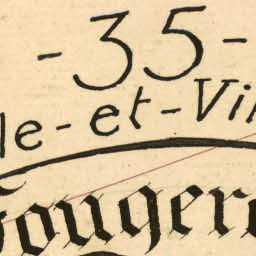 -35-
le-et-Vil
Fougere